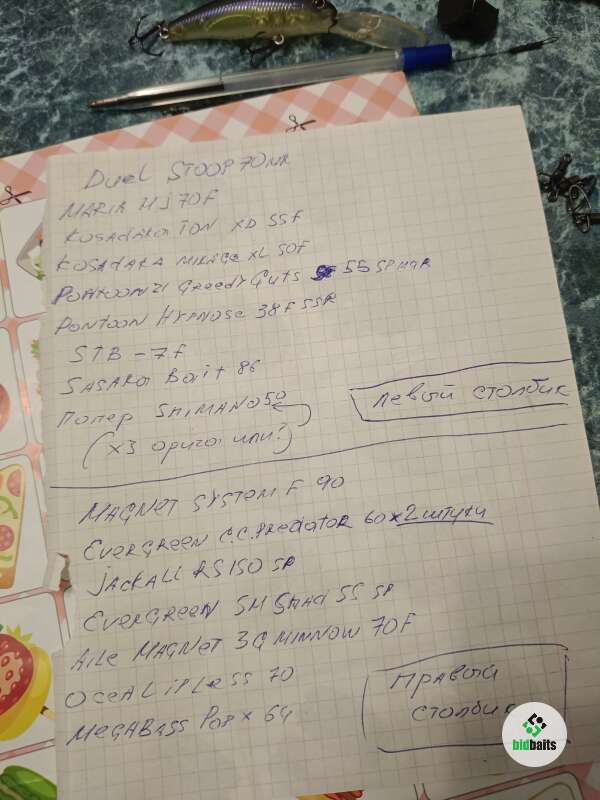 Duel STOOP 70MR
MARIA MJ 70F
KOSADAKA ION XD 55F
KOSADAKA MIRAGE XL 50F
PONTOON21 GreedyGuts 55 SP MDR
PONTOON HYPNOSE 38F SSR
STB - 7F
SASAKA Bait 86
Попер SHIMANO 50
(хз оригол или?)
левый столбик
MAGNET SYSTEM F 90
EVERGREEN C.C. Predator 60 x 2 штуки
JACKALL RS 150 SP
EVERGREEN SH Shad 55 SP
AILE MAGNET 3G MINNOW 70F
OCEA LIPLESS 70
MEGABASS Pop x 64
Правый
столбик
bidbaits